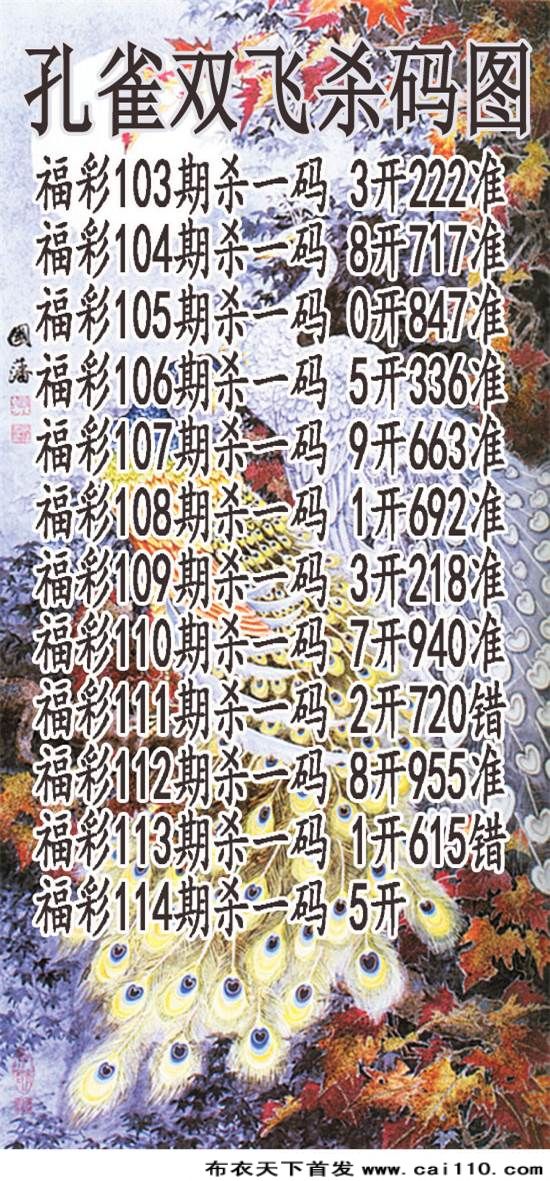 孔雀双飞杀码图
福彩103期杀一码 3开222准
福彩104期杀一码 8开717准
福彩105期杀一码 0开847准
福彩106期杀一码 5开336准
福彩107期杀一码 9开663准
福彩108期杀一码 1开692准
福彩109期杀一码 3开218准
福彩110期杀一码 7开940准
福彩111期杀一码 2开720错
福彩112期杀一码 8开955准
福彩113期杀一码 1开615错
福彩114期杀一码 5开
国藩
布衣天下首发 www.cai110.com